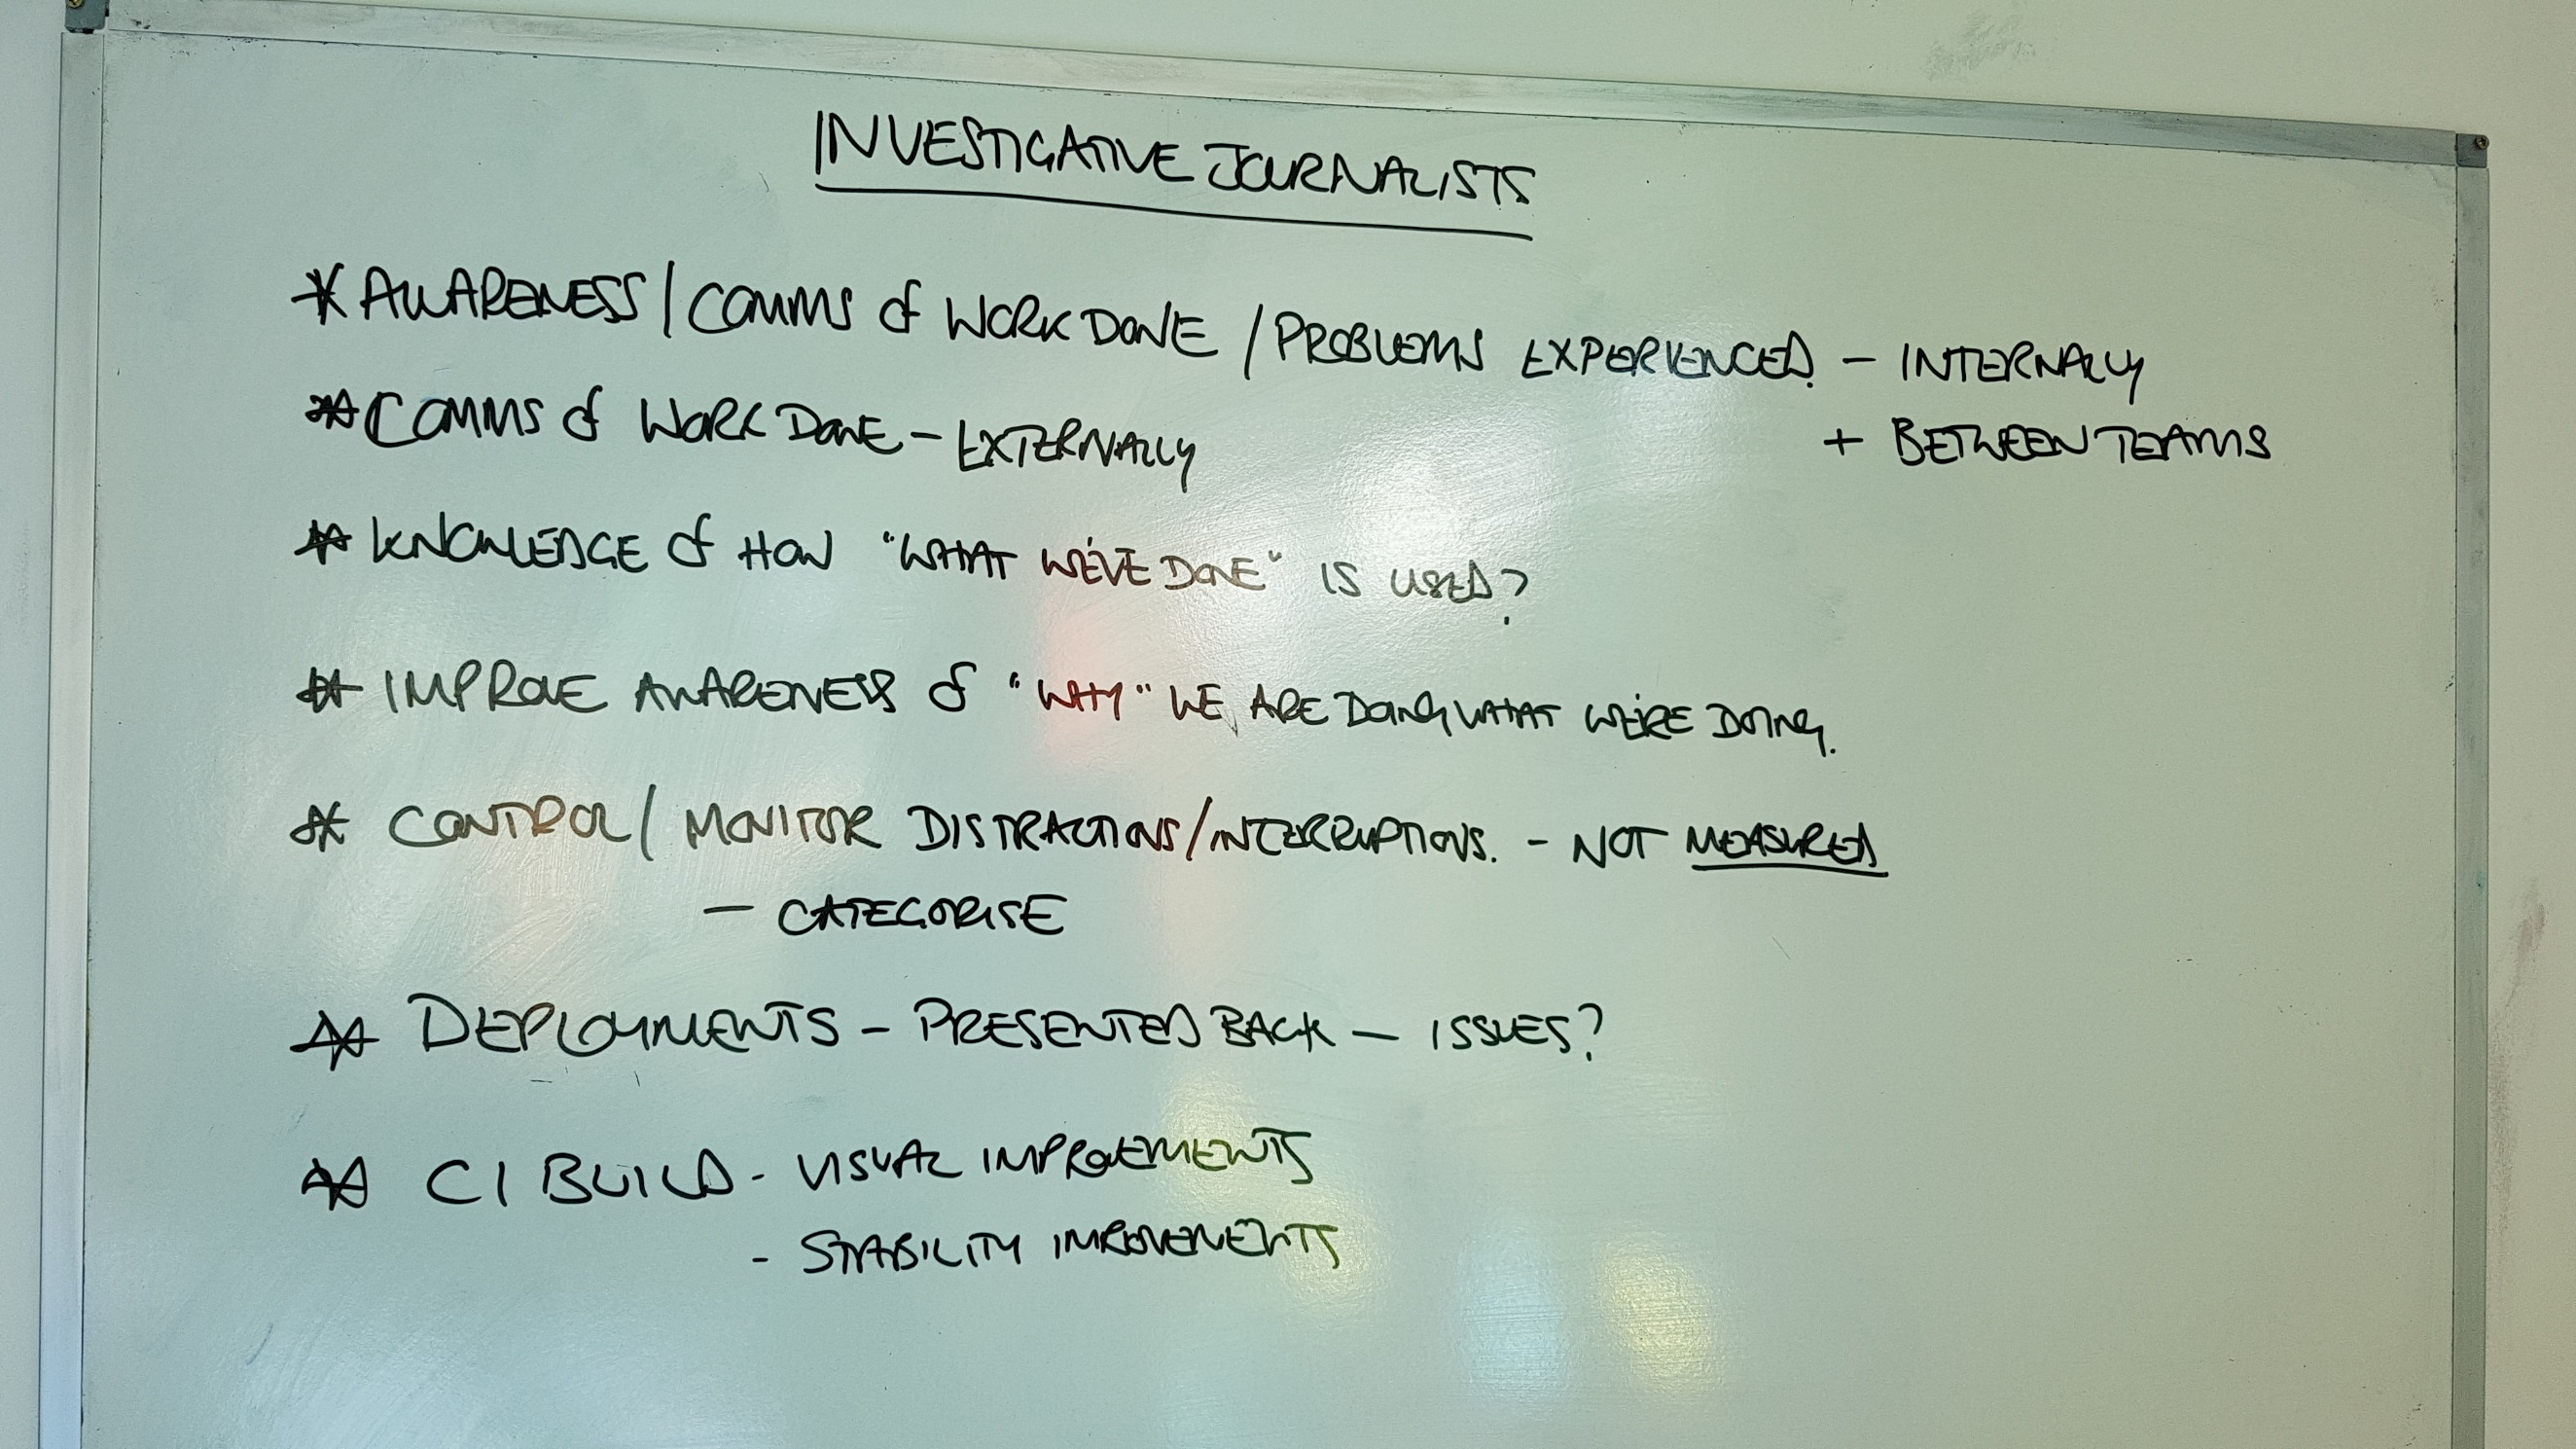 INVESTIGATIVE JOURNALISTS
* AWARENESS / COMMS OF WORK DONE / PROBLEMS EXPERIENCED. - INTERNALLY
+ BETWEEN TEAMS
* COMMS OF WORK DONE - EXTERNALLY
* KNOWLEDGE OF HOW "WHAT WE'VE DONE" IS USED?
* IMPROVE AWARENESS OF "WHY" WE ARE DOING WHAT WE'RE DOING.
* CONTROL / MONITOR DISTRACTIONS/INTERRUPTIONS. - NOT MEASURED
- CATEGORISE
* DEPLOYMENTS - PRESENTED BACK - ISSUES?
* CI BUILD - VISUAL IMPROVEMENTS
- STABILITY IMPROVEMENTS